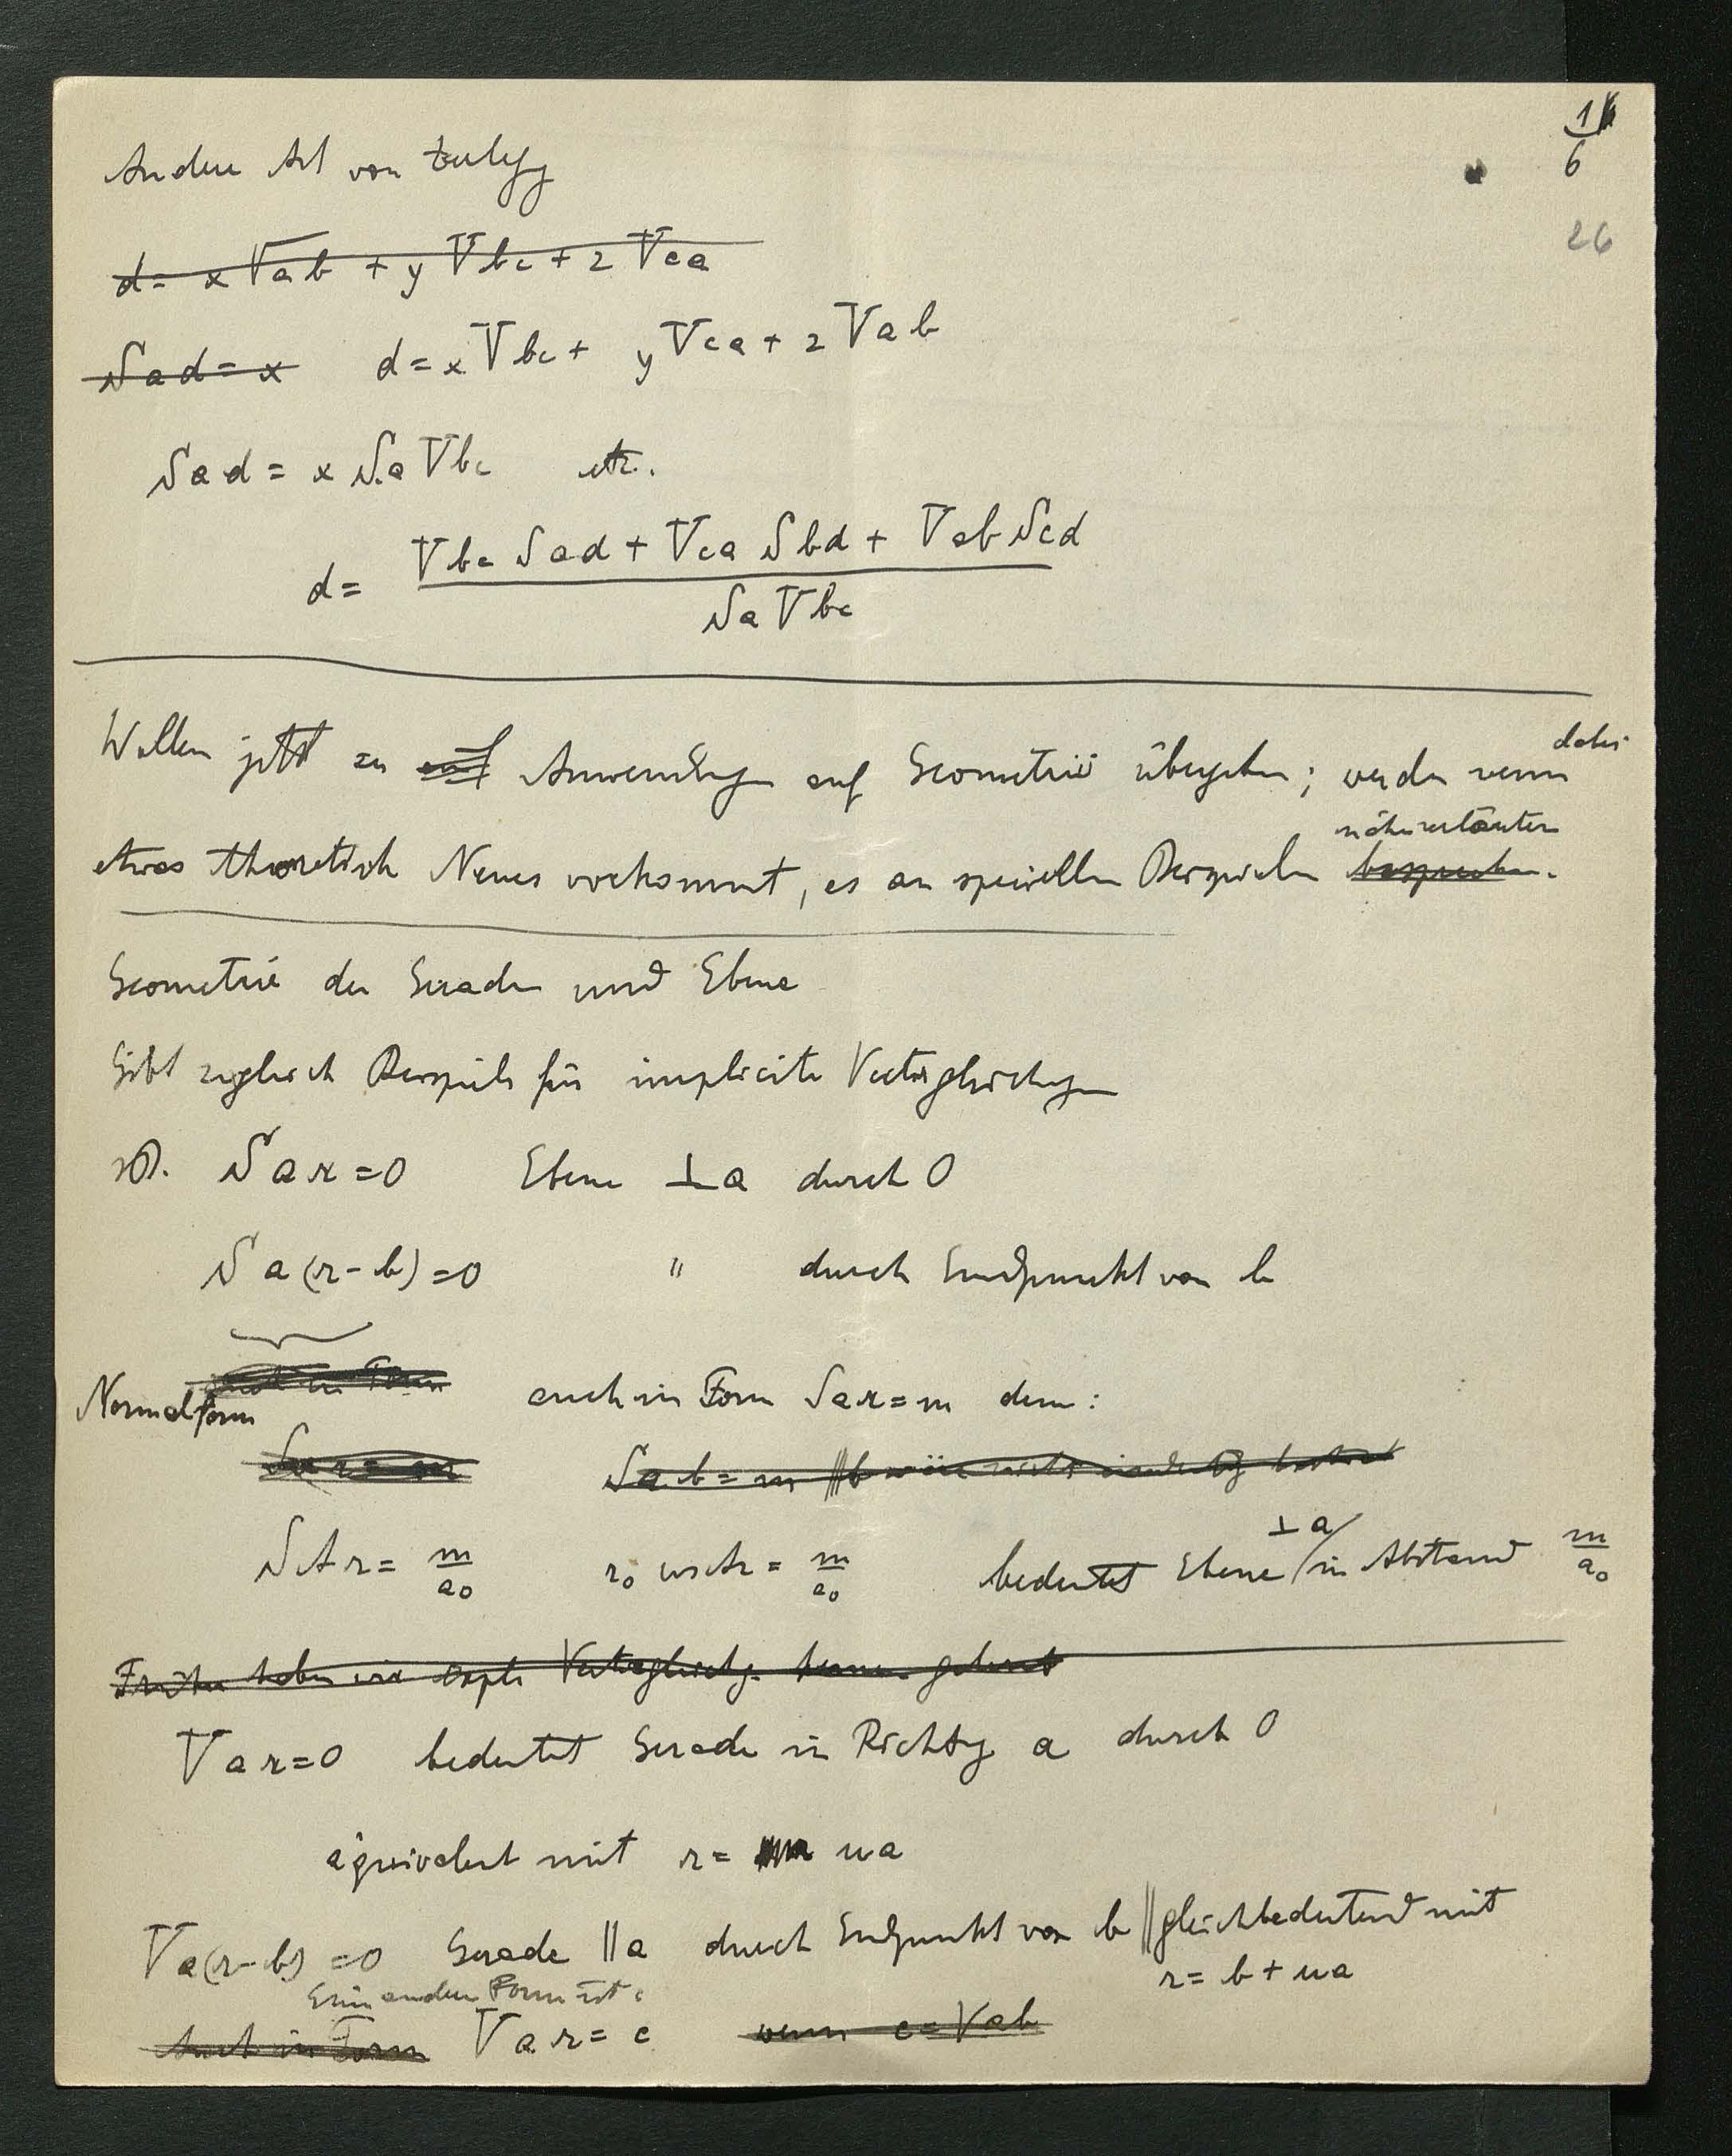 1/6
26
Andere Art von Zerlegg
d = x Vab + y Vbc + z Vca
Sad = x d = x Vbc + y Vca + z Vab
Sad = x SaVbc etc.
d = (Vbc Sad + Vca Sbd + Vab Scd) / SaVbc
dabei
Wollen jetzt zu auf Anwendungen auf Geometrie übergehen; werden wenn
näher erläutern
etwas theoretisch Neues vorkommt, es an speciellen Beispielen besprechen.
Geometrie der Geraden und Ebene
Gibt zugleich Beispiele für implicite Vectorgleichungen
Sar = 0 Ebene ⊥ a durch 0
Sa(r-b) = 0 " durch Endpunkt von b
auch in Form
Normalform auch in Form Sar = m denn:
Sar = m Sab = m b wäre nicht eindeutig bestimmt
⊥ a
SAr = m/a₀ r₀ cos Ar = m/a₀ bedeutet Ebene / in Abstand m/a₀
Früher haben wir expl. Vectorgleichg. kennen gelernt
Var = 0 bedeutet Gerade in Richtg a durch 0
äquivalent mit r = ua
Va(r-b) = 0 Gerade || a durch Endpunkt von b || gleichbedeutend mit
r = b + ua
Eine andere Form ist:
Auch in Form Var = c wenn c = Vab